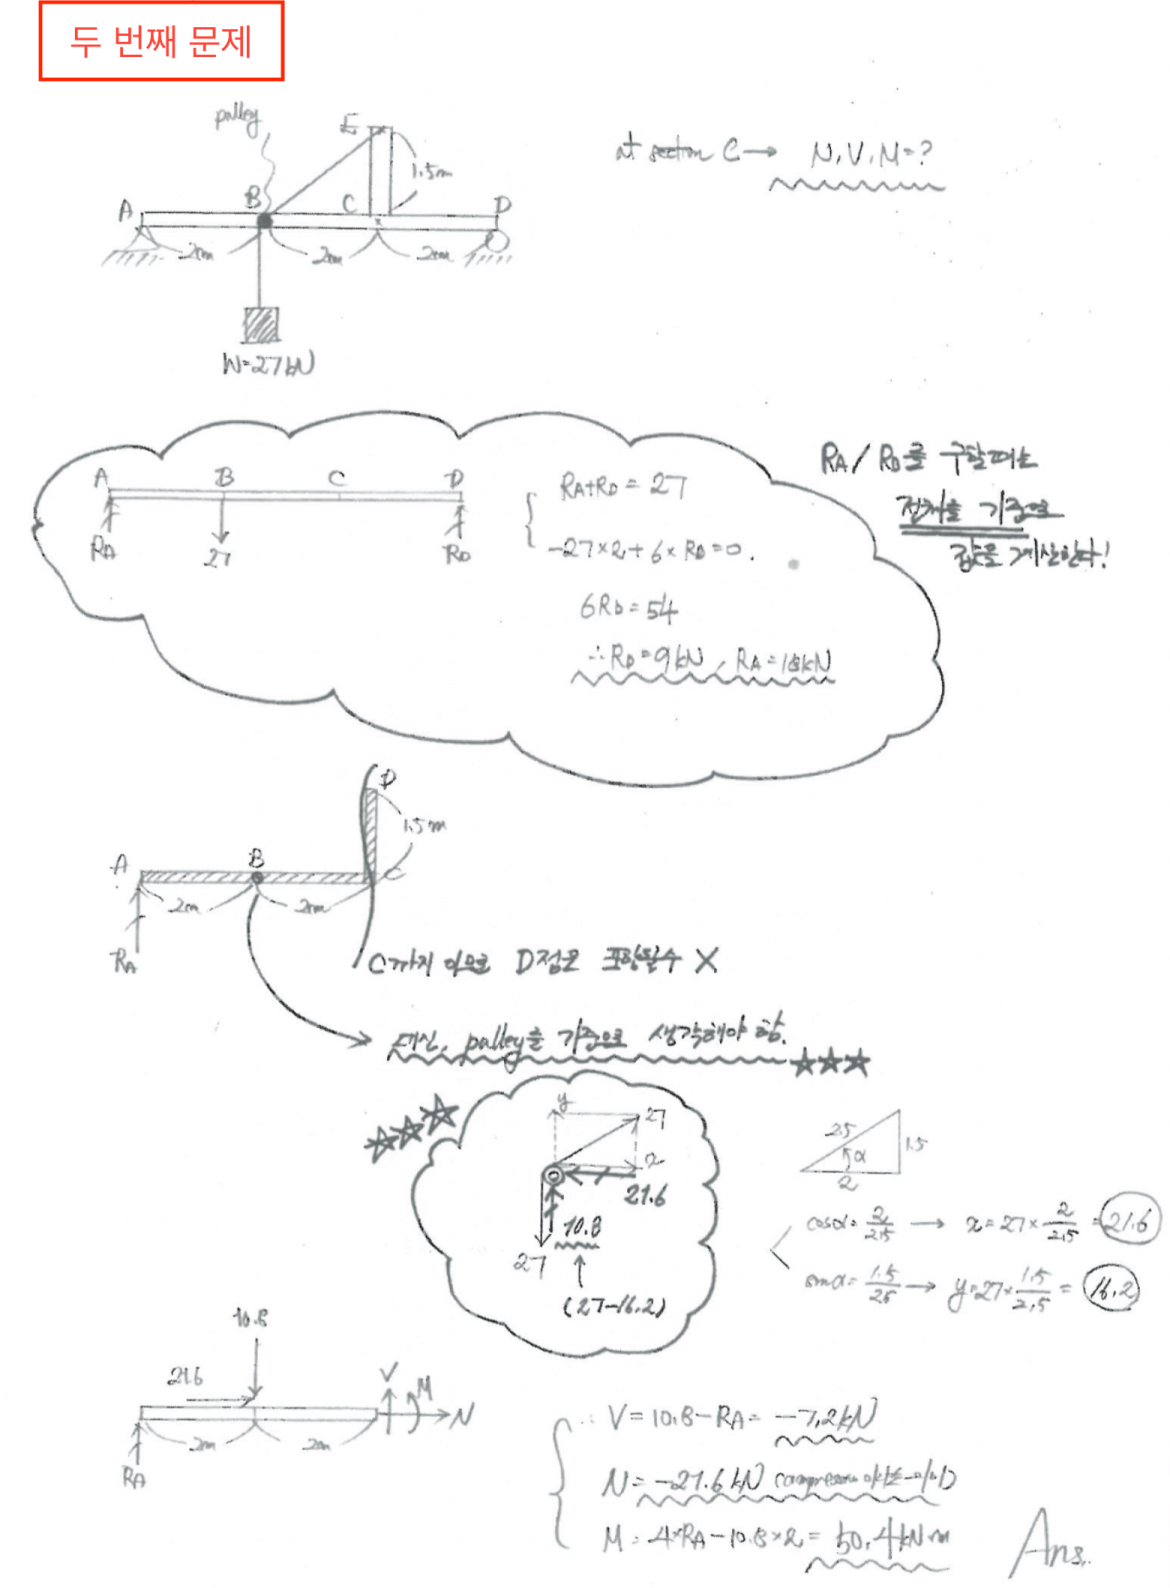 두 번째 문제
pulley
at section C → N, V, M=?
E
1.5m
A B C D
2m 2m 2m
W=27kN
A B C D
RA 27 RD
RA+RD = 27
-27×2+6×RD=0.
6RD=54
∴RD=9kN, RA=18kN
RA/RD를 구할때는
전체를 기준으로
값을 계산한다!
D
1.5m
A B C
2m 2m
RA
C까지 이므로 D점은 포함될수 X
대신, pulley를 기준으로 생각해야 함. ☆☆☆
☆☆☆
y 27
x
21.6
10.8
27
(27-16.2)
2.5 1.5
α
2
cosα = 2/2.5 → x=27×2/2.5 = 21.6
sinα = 1.5/2.5 → y=27×1.5/2.5 = 16.2
10.8
21.6
V M N
2m 2m
RA
∴ V=10.8-RA= -7.2kN
N= -21.6kN
M= 4×RA-10.8×2= 50.4kN·m
Ans.